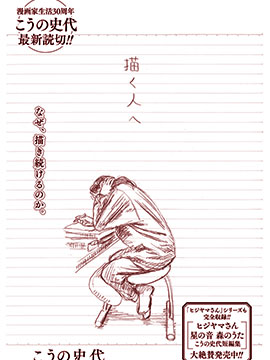 漫画家生活30周年
こうの史代
最新読切!!
描く人へ
なぜ、描き続けるのか。
「ヒジヤマさん」シリーズも
完全収録!!
ヒジヤマさん
星の音 森のうた
こうの史代短編集
大絶賛発売中!!
こうの史代